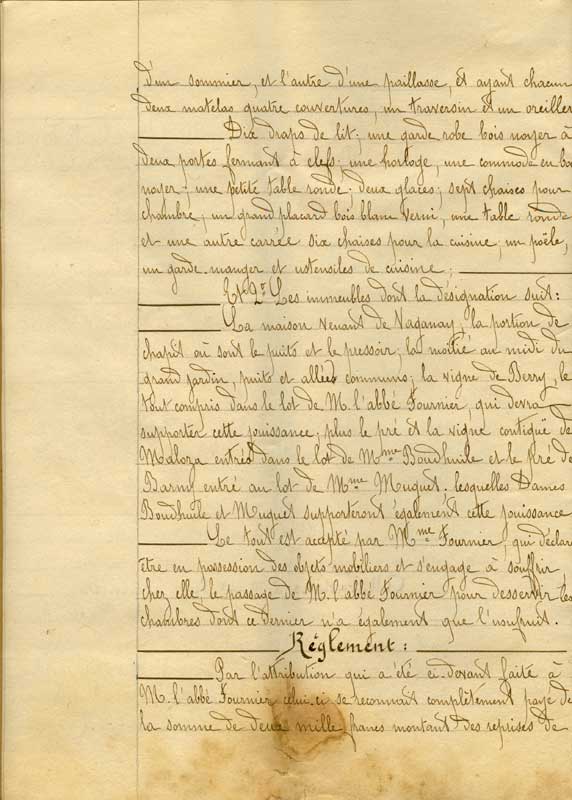 D'un sommier, et l'autre d'une paillasse, et ayant chacun
deux matelas quatre couvertures, un traversin et un oreiller
Dix draps de lit; une garde robe bois noyer à
deux portes fermant à clefs; une horloge, une commode en bois
noyer; une petite table ronde; deux glaces; sept chaises pour
chambre; un grand placard bois blanc verni, une table ronde
et une autre carrée six chaises pour la cuisine; un poële,
un garde-manger et ustensiles de cuisine;
Et 2º Les immeubles dont la désignation suit:
La maison venant de Vaganay; la portion de
chapit où sont le puits et le pressoir; la moitié au midi du
grand jardin, puits et allées communs; la vigne de Berry, le
tout compris dans le lot de M. l'abbé Fournier, qui devra
supporter cette jouissance; plus le pré et la vigne contiguë de
Maloza entrés dans le lot de Mme Boudhuile et le pré de
Barny entré au lot de Mme Muguet. lesquelles Dames
Boudhuile et Muguet supporteront également cette jouissance
Le tout est accepté par Mme Fournier, qui déclare
être en possession des objets mobiliers et s'engage à souffrir,
chez elle, le passage de M. l'abbé Fournier pour desservir les
chambres dont ce dernier n'a également que l'usufruit.
Règlement:
Par l'attribution qui a été ci-devant faite à
M. l'abbé Fournier celui-ci se reconnait complètement payé de
la somme de deux mille francs montant des reprises de